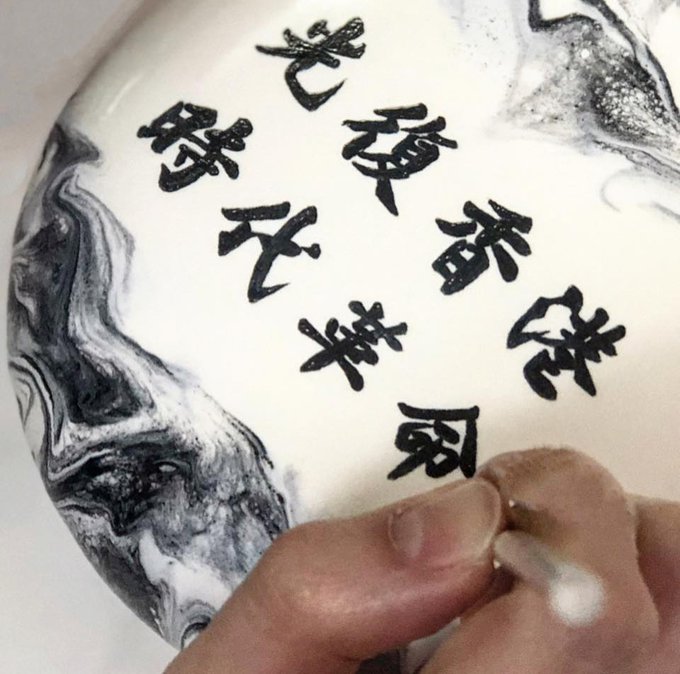 光復香港
時代革